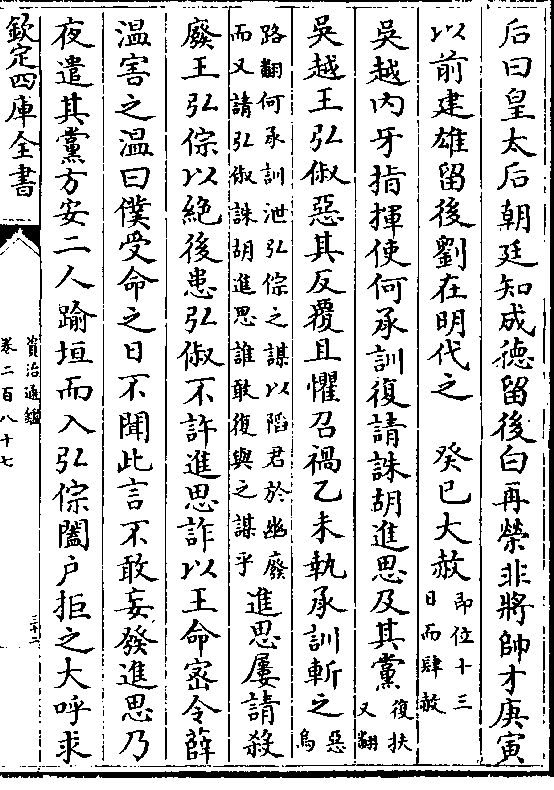 后曰皇太后朝廷知成德留後白再榮非將帥才庚寅
以前建雄留後劉在明代之　癸巳大赦即位十三日而肆赦
吳越内牙指揮使何承訓復請誅胡進思及其黨復扶又翻
吳越王弘俶惡其反覆且懼召禍乙未執承訓斬之惡烏
路翻何承訓泄弘倧之謀以䧟君於幽廢而又請弘俶誅胡進思誰敢復與之謀乎進思屢請殺
廢王弘倧以絶後患弘俶不許進思詐以王命密令薛
温害之温曰僕受命之日不聞此言不敢妄發進思乃
夜遣其黨方安二人踰垣而入弘倧闔户拒之大呼求
欽定四庫全書
資治通鑑
卷二百八十七
三十二